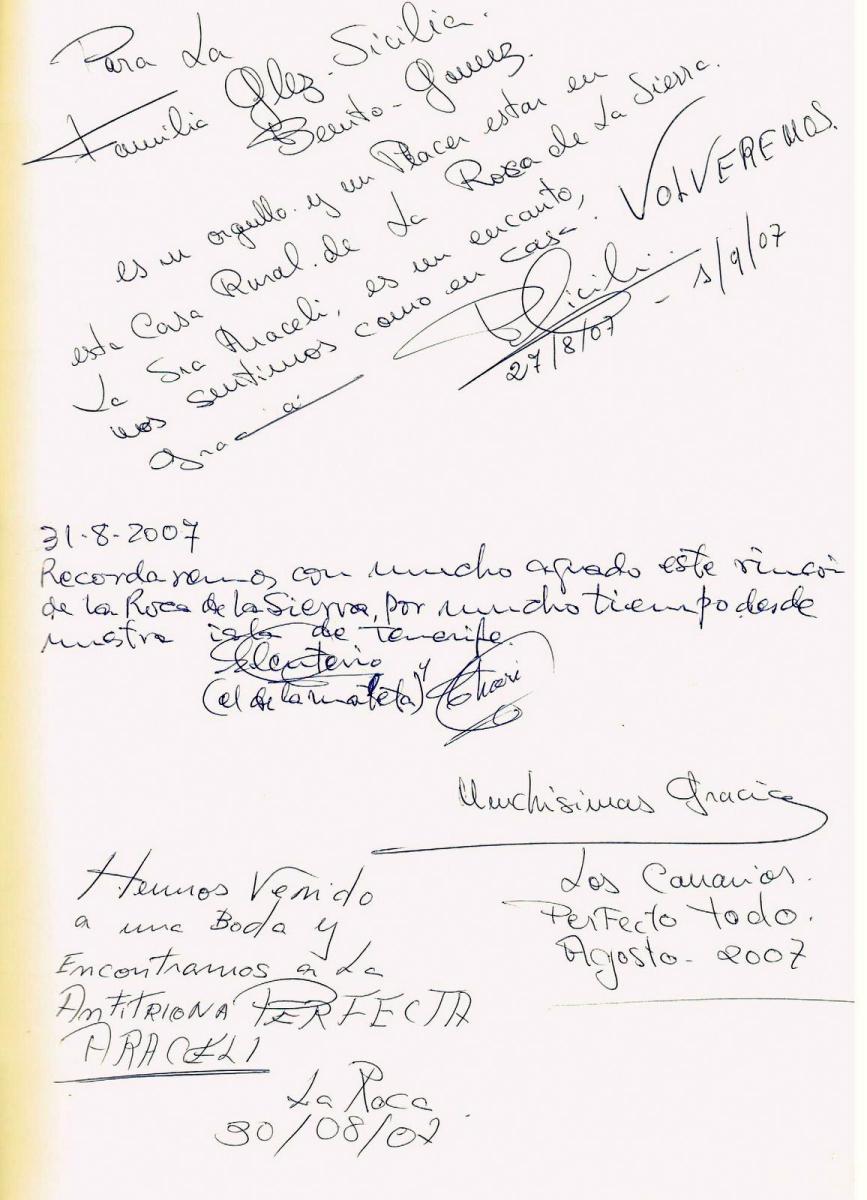 Para La
Familia Glez-Sicilia.
Benito-Gomez.
es un orgullo. y un Placer estar en
esta Casa Rural. de La Roca de La Sierra.
La Sra Araceli, es un encanto,
nos sentimos como en casa. VOLVEREMOS.
Gracia
27/8/07 - 1/9/07
31-8-2007
Recordaremos con mucho agrado este rincon
de la Roca de la Sierra, por mucho tiempo desde
nuestra isla de Tenerife.
Eleuterio
(el de la maleta) y Chari
Muchisimas Gracias
Los Canarios.
Perfecto todo.
Agosto - 2007
Hemos Venido
a una Boda y
Encontramos a La
AnfiTRIONA PERFECTA
ARACELI
La Roca
30/08/07